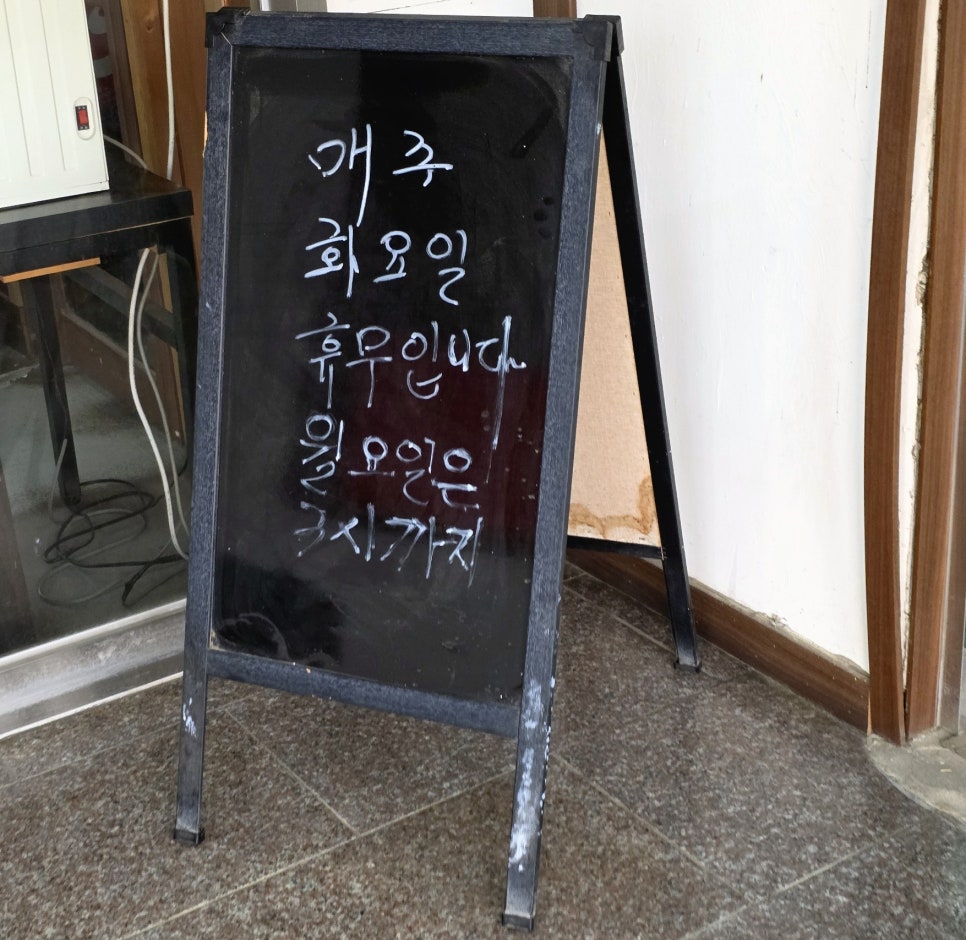 매주
화요일
휴무입니다
월요일은
3시까지